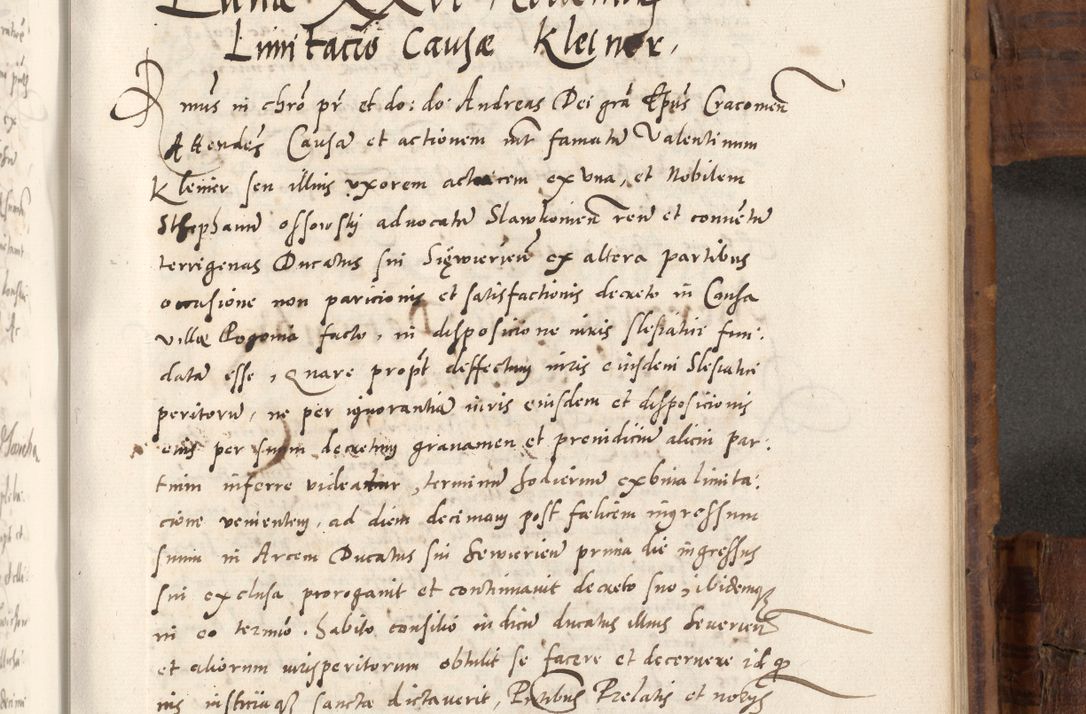 Lunæ XXVI Novembris
Limitatio Causæ Kleiner.
Rmus in chro pr et do: do: Andreas Dei gra Epus Cracovien
Attendes Causa et actionem int famatu Valentinum
Kleiner seu illius uxorem actricem ex una, et Nobilem
Stephanu Ossowskj advocatu Slawkovien reu et conventu
terrigenas Ducatus sui Sięwierien ex altera partibus
occasione non paricionis et satisfactionis decreto in Causa
villæ Pogonia facto, in disposicione iuris Slesiatici fun:
data esse, Quare propt deffectum iuris eiusdem Slesiatici
peritoru, ne per ignorantia iuris eiusdem et disposicionis
eius per suum decretum gravamen et preiudiciu alicui par:
tium inferre videatur, terminu hodiernu ex bina limita:
cione venientem, ad diem decimam post fælicem ingressum
suum in Arcem Ducatus sui Sewerien prima die ingressus
sui exclusa prorogavit et continuavit decreto suo, ibidemq
in eo termio, habito consilio iudicu ducatus illius Severien
et aliorum iurisperitorum obtulit se facere et decernere id q
ius iusticiaq sancta dictaverit, Pntibus Prelatis et nobijs